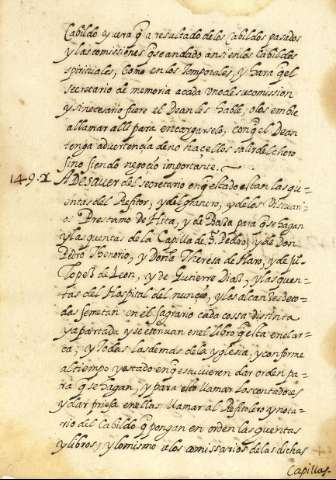 Cabildo y vera q̄ a resultado de los cabildos pasados
y las comisiones q̄ se an dado ansi en los cabildos
spirituales, Como en los temporales, y hara q̄ el
secretario de memoria a cada uno de su comission
y si necesario fuere el Dean los hable, o los embie
a llamar alli para encargarselo, con q̄ el Dean
tenga advertencia de no hacellos salir del choro
sino siendo negocio importante.
149. A De saver del secretario en q̄ estado estan las qu
entas del Refitor, y del granero, y de los
Prestamo de Hita, y de para que se hagan
y las quentas de la Capilla de S. Pedro, y de Don
Pedro Thenorio, y Doña Theresa de Haro, y de
Lopez de Leon, y de Gutierre Diaz, y las quen
tas del Hospital del nuncio, y los alcanzes de to
das se metan en el sagrario cada cossa distinta
y apartada y se escrivan en el libro q̄ esta en el ar
ca; y todas las demas de la yglesia, y conforme
al tiempo y estado en q̄ estuvieren dar orden pa
ra q̄ se hagan; y para esto llamar los contadores
y dar priesa en ellas llamar al Refitolero y nota
rio del Cabildo q̄ pongan en orden las quentas
y libros; y lo mismo a los comissarios de las dichas
Capillas